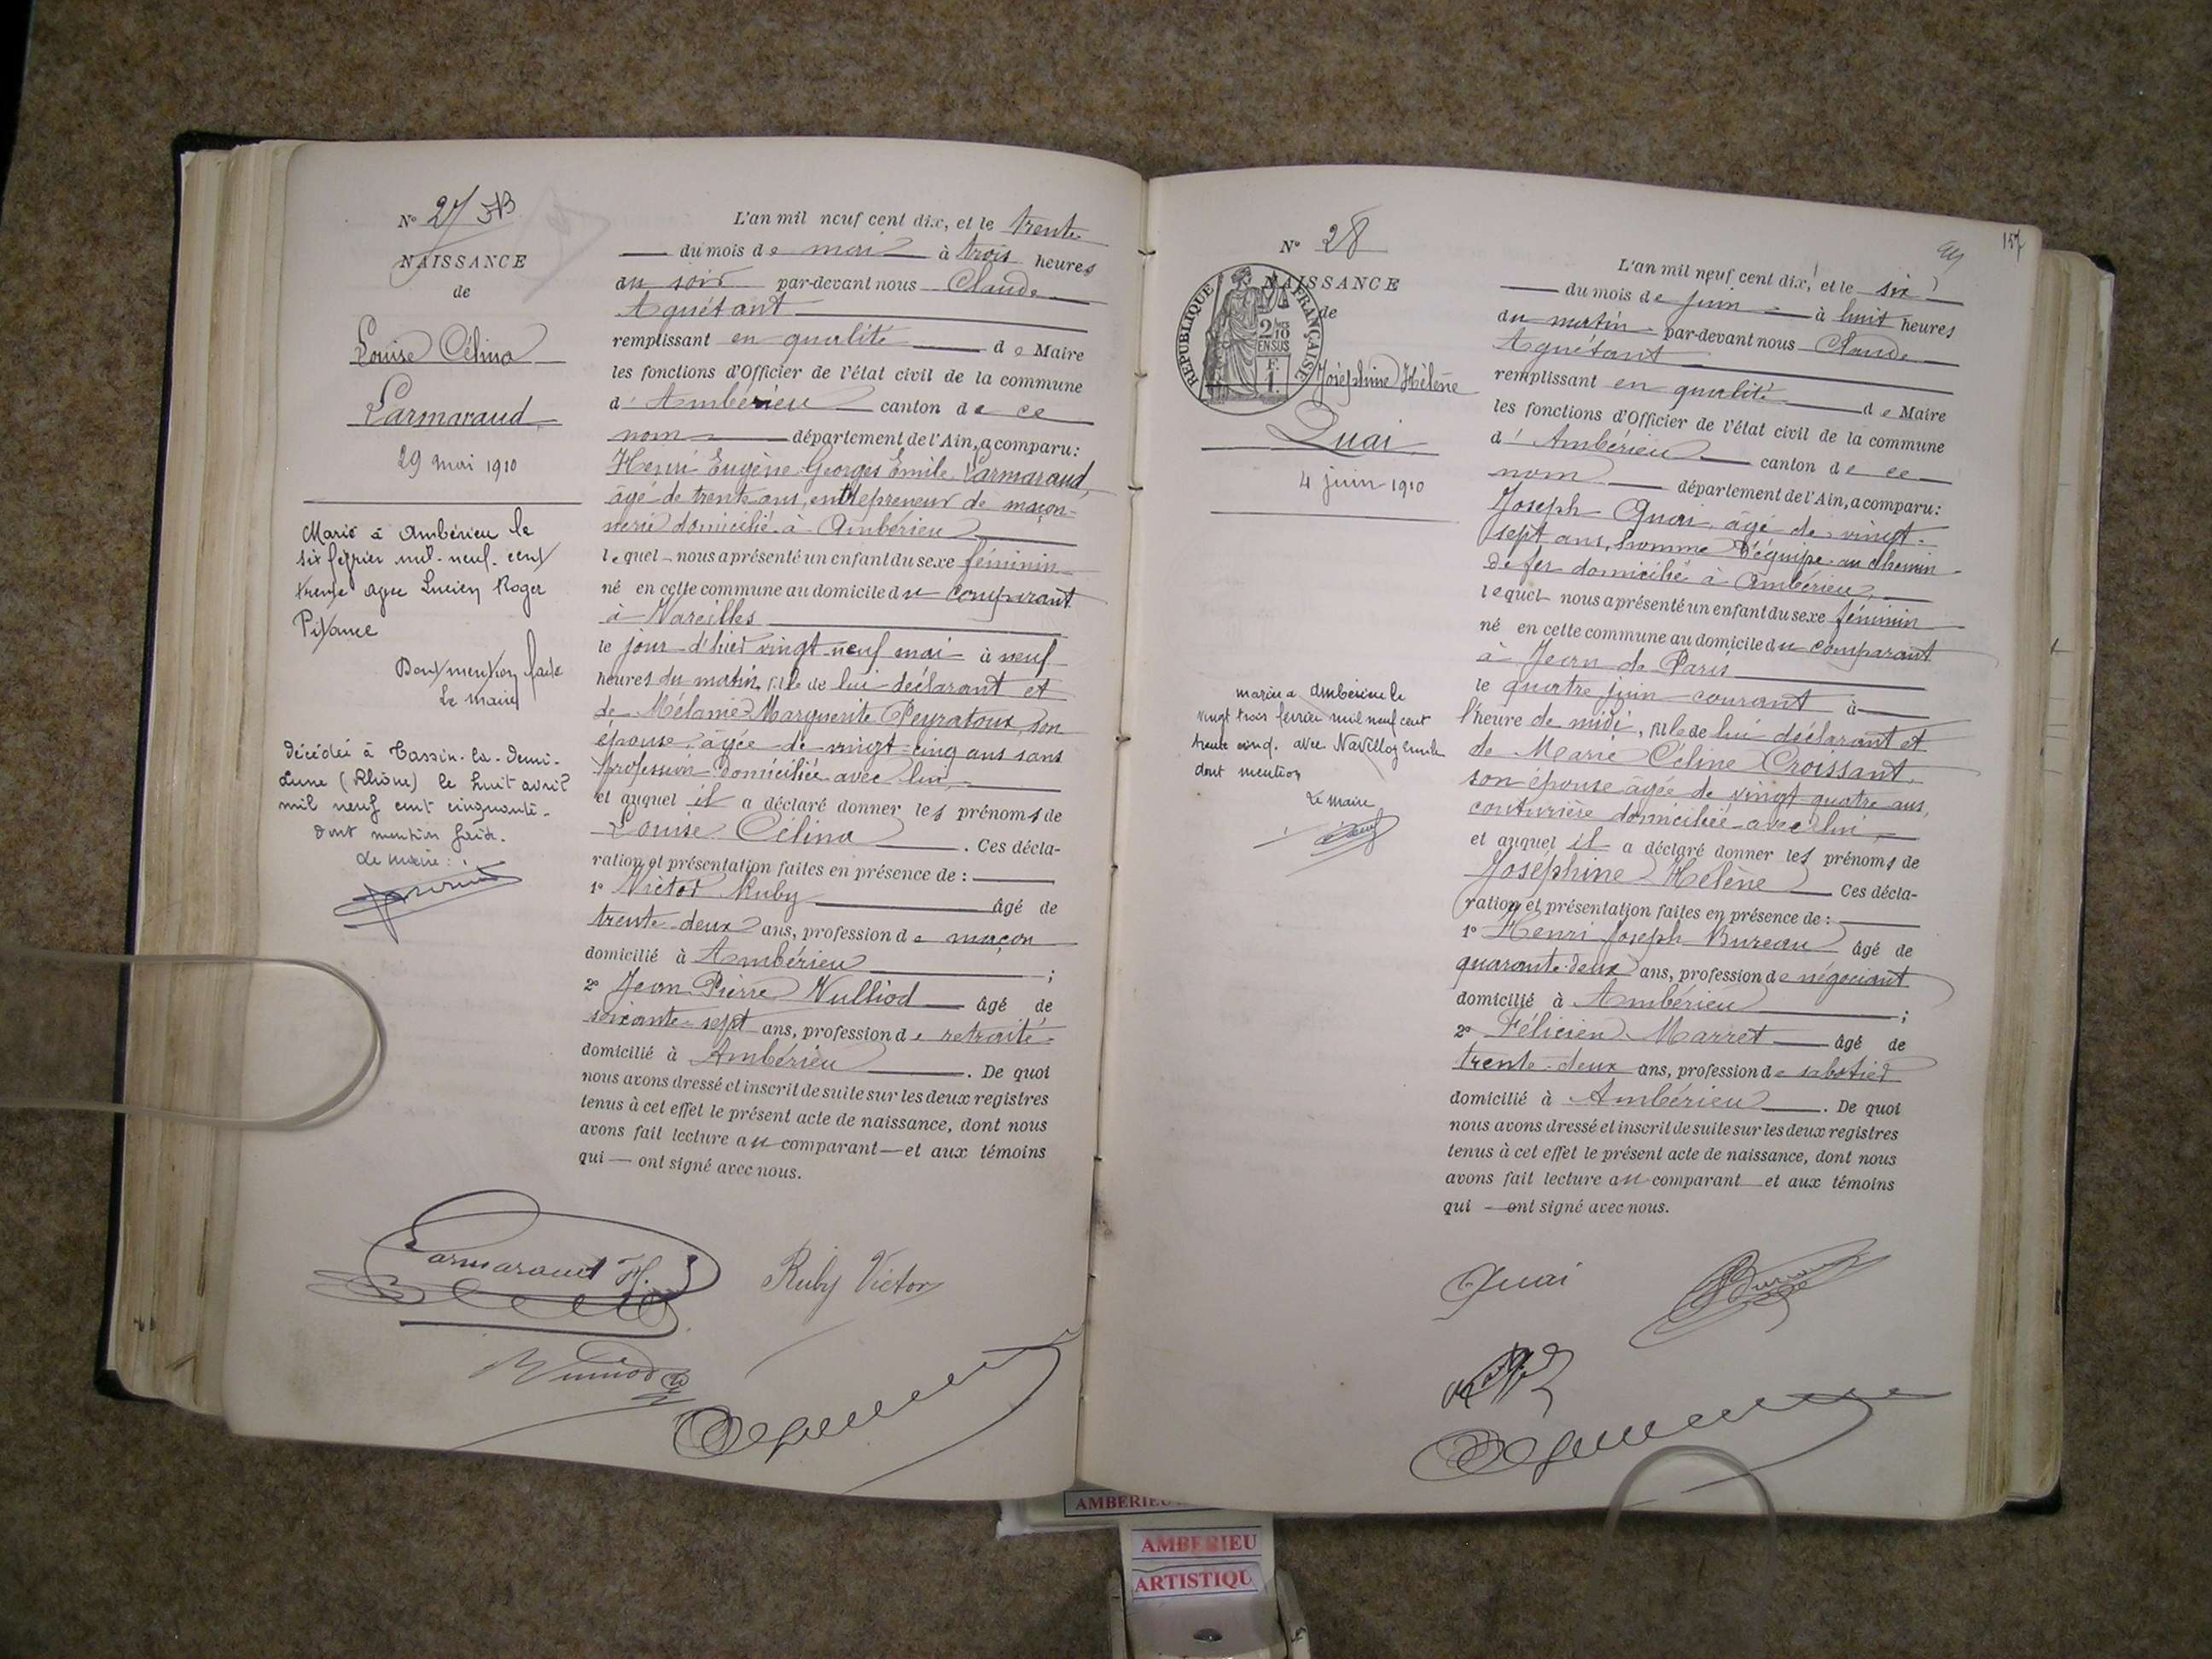 N° 27
NAISSANCE
de
Louise Célina
Parmaraud
29 mai 1910
Marié à Ambérieu le
six février mil-neuf-cent
trente avec Lucien Roger
Pitance
Dont mention faite
Le maire
Décédée à Tassin-la-Demi-
Lune (Rhône) le huit avril
mil neuf cent cinquante.
Dont mention faite.
Le maire :
L'an mil neuf cent dix, et le trente
du mois de mai à trois heures
du soir par-devant nous Claude
Aguétant
remplissant en qualité de Maire
les fonctions d'Officier de l'état civil de la commune
d' Ambérieu canton de ce
nom département de l'Ain, a comparu :
Henri Eugène Georges Emile Parmaraud,
âgé de trente ans, entrepreneur de maçon-
nerie domicilié à Ambérieu
lequel nous a présenté un enfant du sexe féminin
né en cette commune au domicile du comparant
à Vareilles
le jour d'hier vingt-neuf mai à neuf
heures du matin, fille de lui déclarant et
de Mélanie Marguerite Peyratoux, son
épouse, âgée de vingt-cinq ans sans
profession domiciliée avec lui
et auquel il a déclaré donner les prénoms de
Louise Célina . Ces décla-
ration et présentation faites en présence de :
1° Victor Ruby âgé de
trente-deux ans, profession de maçon
domicilié à Ambérieu ;
2° Jean Pierre Vulliod âgé de
soixante-sept ans, profession de retraité
domicilié à Ambérieu . De quoi
nous avons dressé et inscrit de suite sur les deux registres
tenus à cet effet le présent acte de naissance, dont nous
avons fait lecture au comparant et aux témoins
qui ont signé avec nous.
Parmaraud H.
Ruby Victor
Vulliod
157
N° 28
NAISSANCE
de
RÉPUBLIQUE FRANÇAISE
2/10
EN SUS
F.
1.
Joséphine Hélène
Quai
4 juin 1910
mariée à Ambérieu le
vingt trois février mil neuf cent
trente cinq. avec Emile
dont mention
Le Maire
L'an mil neuf cent dix, et le six
du mois de juin à huit heures
du matin par-devant nous Claude
Aguétant
remplissant en qualité de Maire
les fonctions d'Officier de l'état civil de la commune
d' Ambérieu canton de ce
nom département de l'Ain, a comparu :
Joseph Quai, âgé de vingt-
sept ans, homme d'équipe au chemin
de fer domicilié à Ambérieu,
lequel nous a présenté un enfant du sexe féminin
né en cette commune au domicile du comparant
à Jean de Paris
le quatre juin courant à
l'heure de midi, fille de lui déclarant et
de Marie Céline Croissant,
son épouse âgée de vingt-quatre ans,
couturière domiciliée avec lui,
et auquel il a déclaré donner les prénoms de
Joséphine Hélène Ces décla-
ration et présentation faites en présence de :
1° Henri Joseph Bureau âgé de
quarante-deux ans, profession de négociant
domicilié à Ambérieu ;
2° Félicien Marret âgé de
trente-deux ans, profession de sabotier
domicilié à Ambérieu . De quoi
nous avons dressé et inscrit de suite sur les deux registres
tenus à cet effet le présent acte de naissance, dont nous
avons fait lecture au comparant et aux témoins
qui ont signé avec nous.
Quai
AMBERIEU
AMBERIEU
ARTISTIQU